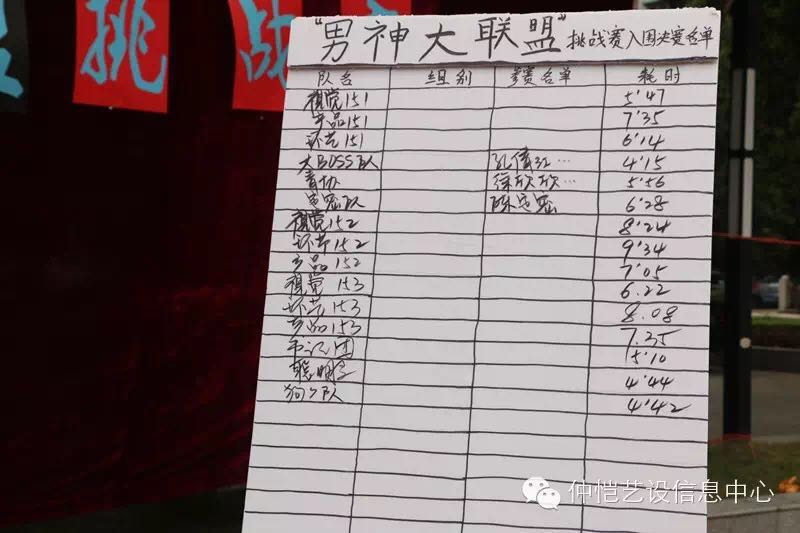 挑战
“男神大联盟”挑战赛入围决赛名单
队名 组别 参赛名单 耗时
视觉151 5'47
产品151 7'35
环艺151 6'14
大BOSS队 4'15
青协 徐欣欣… 5'56
6'28
视觉152 8'24
环艺152 9'34
产品152 7'05
视觉153 6.22
环艺153 8.08
产品153 7.35
书记团 5'10
4'44
狗子队 4'42
仲恺艺设信息中心